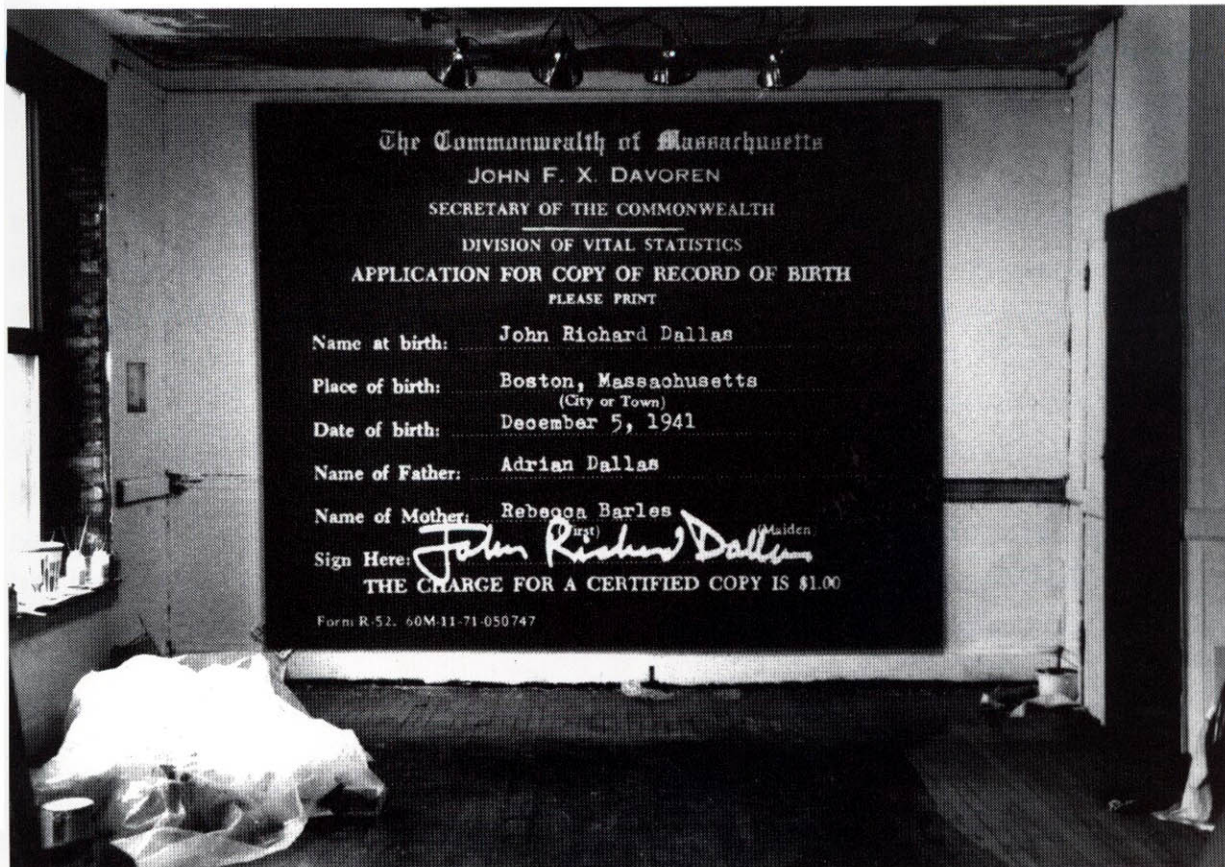 The Commonwealth of Massachusetts
JOHN F. X. DAVOREN
SECRETARY OF THE COMMONWEALTH
DIVISION OF VITAL STATISTICS
APPLICATION FOR COPY OF RECORD OF BIRTH
PLEASE PRINT
Name at birth: John Richard Dallas
Place of birth: Boston, Massachusetts
(City or Town)
Date of birth: December 5, 1941
Name of Father: Adrian Dallas
Name of Mother: Rebecca Barles
(First) (Maiden)
Sign Here: John Richard Dallas
THE CHARGE FOR A CERTIFIED COPY IS $1.00
Form R-52. 60M-11-71-050747